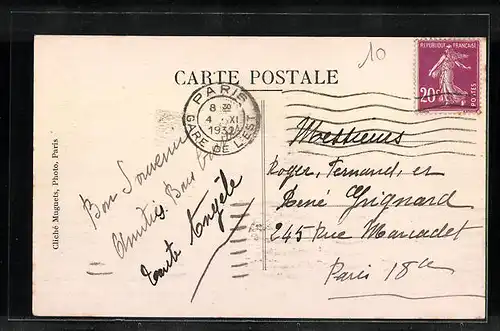 10
CARTE POSTALE
RÉPUBLIQUE FRANÇAISE
20c
POSTES
PARIS
8 30
4 XI
1932
GARE DE L'EST
Cliché Muguets, Photo. Paris
Bon Souvenir
Amitiés. Bons
Tante Angèle
Messieurs
Roger, Fernand, et
René Grignard
245 Rue Marcadet
Paris 18e